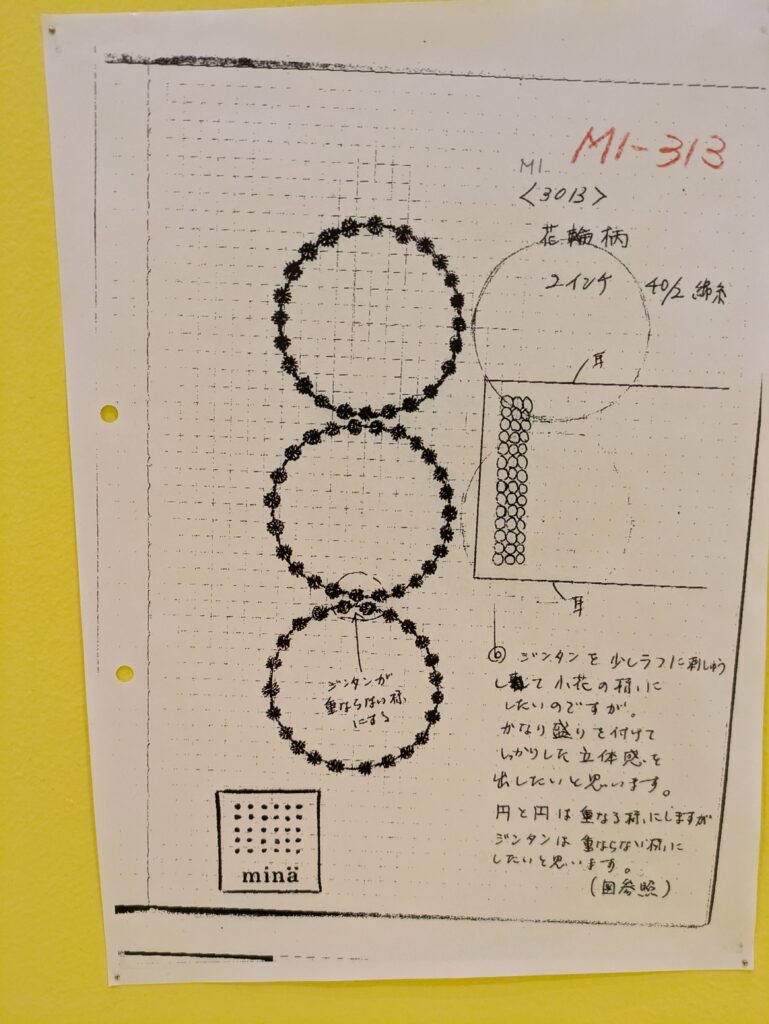 MI-313
MI-
<3013>
花輪柄
2インチ
40/2 綿糸
耳
耳
ジンタンが
重ならない様
にする
ⓑ ジンタンを少しラフに刺しゅう
して小花の様に
したいのですが。
かなり盛りを付けて
しっかりした立体感を
出したいと思います。
円と円は重なる様にしますが
ジンタンは重ならない様に
したいと思います。
(図参照)
minä